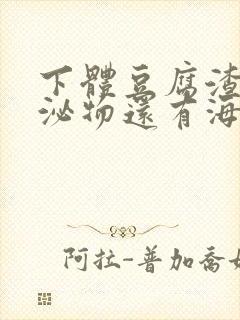 下體豆腐渣
泌物還有海
阿拉-普加喬